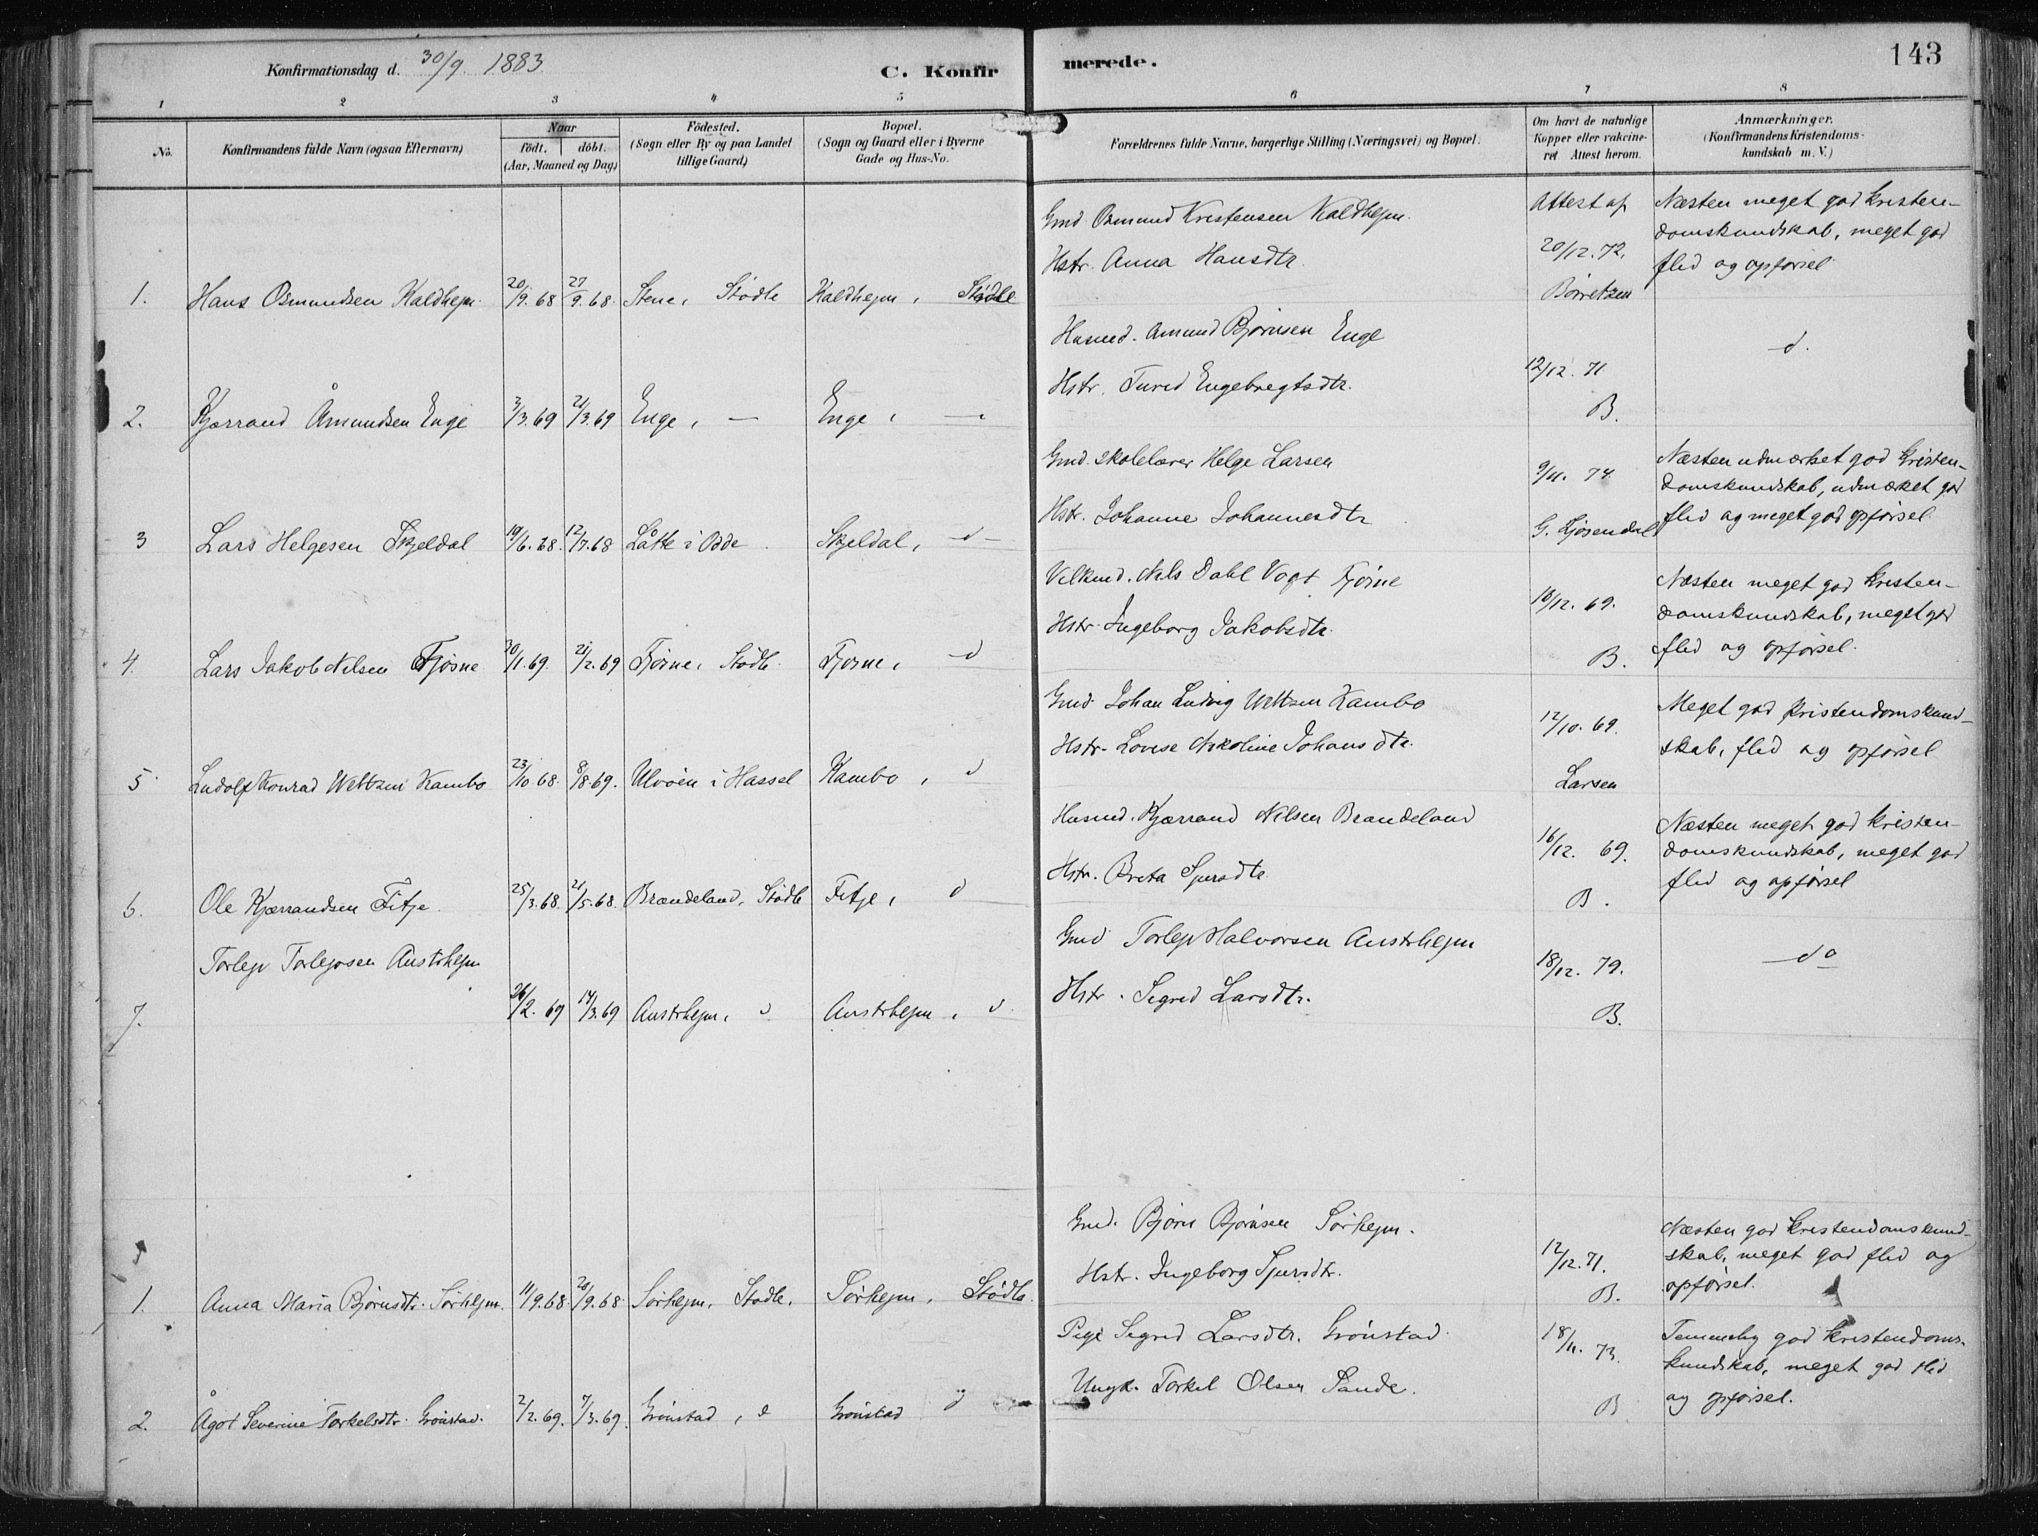 Konfirmationsdag d. 30/9 1883
C. Konfirmerede.
143
1 2 3 4 5 6 7 8
No.
Konfirmandens fulde Navn (ogsaa Efternavn)
Naar
födt. döbt.
(Aar, Maaned og Dag)
Födested.
(Sogn eller By og paa Landet
tillige Gaard)
Bopæl.
(Sogn og Gaard eller i Byerne
Gade og Hus-No.
Forældrenes fulde Navne, borgerlige Stilling (Næringsvei) og Bopæl.
Om havt de naturlige
Kopper eller vakcine-
ret Attest herom.
Anmærkninger.
(Konfirmandens Kristendoms-
kundskab m. V.)
Gmd. Osmund Kristensen Kaldhejm.
Hstr. Anna Hansdtr.
Attest af
20/12. 72.
Börretzen
Næsten meget god Kristen-
domskundskab, meget god
flid og opförsel
1. Hans Osmundsen Kaldhejm 20/9. 68 27/9. 68. Stene, Stödle Kaldhejm, Stödle
Husmd. Amund Björnsen Enge
Hstr. Turid Engebregtsdtr.
12/12. 71
B.
d.
2. Kjærrand Åmundsen Enge 3/3. 69 21/3. 69 Enge, — Enge, —
Gmd. skolelærer Helge Larsen
Hstr. Johanne Johannesdtr
9/11. 74.
G. Ljösendal
Næsten udmærket god Kristen-
domskundskab, udmærket god
flid og meget god opförsel.
3 Lars Helgesen Skjeldal 19/6. 68 12/7. 68 Låtte i Odde Skjeldal, d
Nils Dahl Vogt Fjösne
Hstr. Ingeborg Jakobsdtr.
18/12. 69.
B.
Næsten meget god Kristen-
domskundskab, meget god
flid og opförsel.
4. Lars Jakob Nilsen Fjösne 20/1. 69. 21/2. 69 Fjösne, Stödle Fjosne, d
Gmd. Johan Ludvig Wettzen Kambo
Hstr. Lovise Nikoline Johansdtr.
12/10. 69.
Larsen
Meget god Kristendomskund-
skab, flid og opförsel
5 Ludolf Konrad Wettzen Kambo 23/10 68. 8/8. 69. Ulvöen i Hassel Kambo, d
Husmd. Kjærrand Nilsen Brandeland
Hstr. Breta Sjursdtr.
16/12. 69.
B.
Næsten meget god Kristen-
domskundskab, meget god
flid og opförsel
6. Ole Kjærrandsen Fitje. 25/3. 68. 21/5. 68. Brandeland, Stödle Fitje, d
Gmd Torleif Halvorsen Austrhejm
Hstr. Sigrid Larsdtr.
18/12. 79.
B.
do
Torleif Torleifsen Austrhejm
7. 26/2. 69 14/3. 69 Austrhejm, d Austrhejm, d.
Gmd. Björn Björnsen Sörhejm.
Hstr. Ingeborg Sjursdtr.
12/12. 71.
B.
Næsten god Kristendomskund-
skab, meget god flid og
opförsel.
1. Anna Maria Björnsdtr. Sörhejm. 11/9. 68. 20/9. 68 Sörhejm, Stodle, Sörhejm, Stödle.
Pige Sigrid Larsdtr. Grönstad
Ungk. Torkel Olsen Sande.
18/11. 73.
B
Temmelig god Kristendoms-
kundskab, meget god flid
og opförsel.
2. Ågot Severine Torkelsdtr. Grönstad. 2/2. 69. 7/3. 69. Grönstad, d Grönstad d